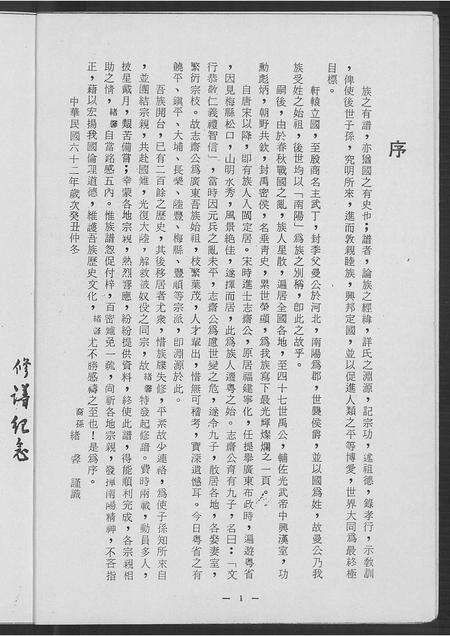 序
族之有譜，亦猶國之有史也；譜者，論族之經緯，詳氏之淵源，記宗功，述祖德，錄孝行，示教訓
，俾使後世子孫，究明所來，進而敦親睦族，興邦定國，並以促進人類之平等博愛，世界大同為最終極
目標。
軒轅立國，至殷商名主武丁，封季父曼公於河北，南陽為郡，世襲侯爵，並以國為姓，故曼公乃我
族受姓之始祖，後世均以「南陽」為族之別稱，即此之故乎。
嗣後，由於春秋戰國之亂，族人星散，遍居全國各地，至四十七世禹公，輔佐光武帝中興漢室，功
勳彪炳，朝野共欽，封禹密侯，名垂青史，累世榮顯，為我族寫下最光輝燦爛之一頁。
自唐宋以降，即有族人入閩定居。宋時進士志齋公，原居福建寧化，任提舉廣東布政時，遍遊粵省
，因見梅縣松口，山明水秀，風景絶佳，遂擇而居，此為族人遷粵之始。志齋公育有九子，名曰：「文
行恭敬仁義禮智信」，當時因元兵之亂未平，志齋公為慮世變之危，遂令九子，散居各地，各娶妻室，
繁衍宗枝。故志齋公為廣東吾族始祖，枝繁葉茂，人才輩出，惜無可稽考，實深遺憾耳。今日粵省之有
饒平、鎮平、大埔、長樂、陸豐、梅縣、豐順等宗派，即淵源於此。
吾族開台，已有二百餘之歷史，其後移居者尤衆，惟族牒失修，平素故少連絡，為使子孫知所來自
，並團結宗親，共赴國難，光復大陸，解救被奴役之同宗，故緒馨特發起修譜。費時兩載，動員多人，
披星戴月，艱苦備嘗；幸蒙各地宗親，熱烈響應，紛紛提供資料，終使此譜，得能順利完成，各宗親相
助之情，緒馨自當銘感五內。惟族譜忽促付梓，百密難免一疏，尚祈各地宗親，發揮南陽精神，不吝指
正，藉以宏揚我國倫理道德，維護吾族歷史文化，緒馨尤不勝感禱之至也！是為序。
裔孫 緒馨 謹識
中華民國六十二年歲次癸丑仲冬
修譜紀念
— 1 —